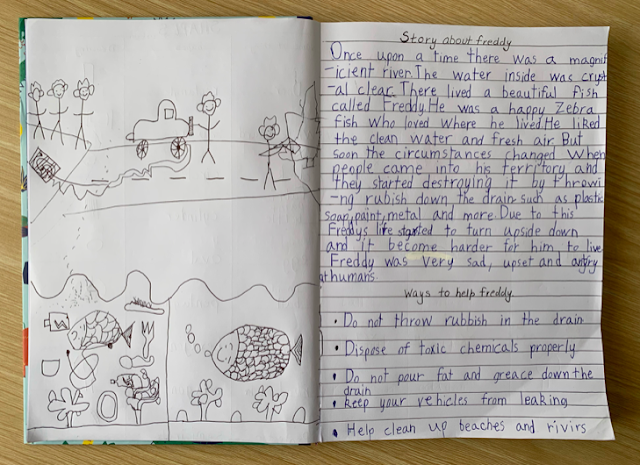 Story about freddy
Once upon a time there was a magnif
-icient river. The water inside was cryst
-al clear. There lived a beautiful fish
called Freddy. He was a happy Zebra
fish who loved where he lived. He liked
the clean water and fresh air. But
soon the circumstances changed When
people came into his territory and
they started destroying it by throwi
-ng rubish down the drain such as plastic
soap, paint, metal and more. Due to this
Freddys life started to turn upside down
and it become harder for him to live
Freddy was very sad, upset and angry
at humans
Ways to help freddy
• Do not throw rubbish in the drain
• Dispose of toxic chemicals properly
• Do not pour fat and greace down the
drain
• keep your vehicles from leaking
• Help clean up beaches and rivirs